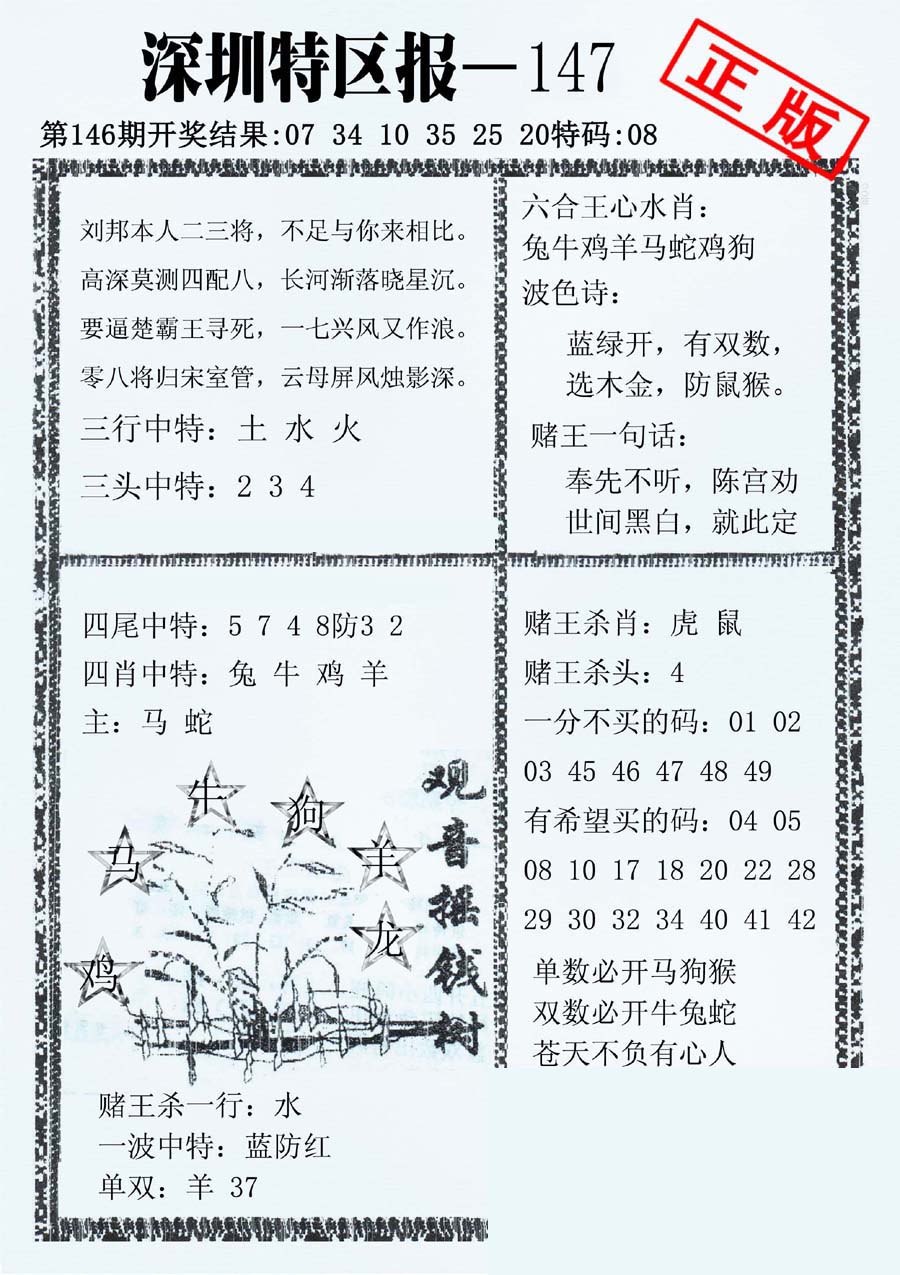 深圳特区报—147
正版
第146期开奖结果:07 34 10 35 25 20特码:08
刘邦本人二三将，不足与你来相比。
高深莫测四配八，长河渐落晓星沉。
要逼楚霸王寻死，一七兴风又作浪。
零八将归宋室管，云母屏风烛影深。
三行中特：土 水 火
三头中特：2 3 4
六合王心水肖：
兔牛鸡羊马蛇鸡狗
波色诗：
蓝绿开，有双数，
选木金，防鼠猴。
赌王一句话：
奉先不听，陈宫劝
世间黑白，就此定
四尾中特：5 7 4 8防3 2
四肖中特：兔 牛 鸡 羊
主：马 蛇
牛
狗
马
羊
龙
鸡
观音摇钱树
赌王杀一行：水
一波中特：蓝防红
单双：羊 37
赌王杀肖：虎 鼠
赌王杀头：4
一分不买的码：01 02
03 45 46 47 48 49
有希望买的码：04 05
08 10 17 18 20 22 28
29 30 32 34 40 41 42
单数必开马狗猴
双数必开牛兔蛇
苍天不负有心人